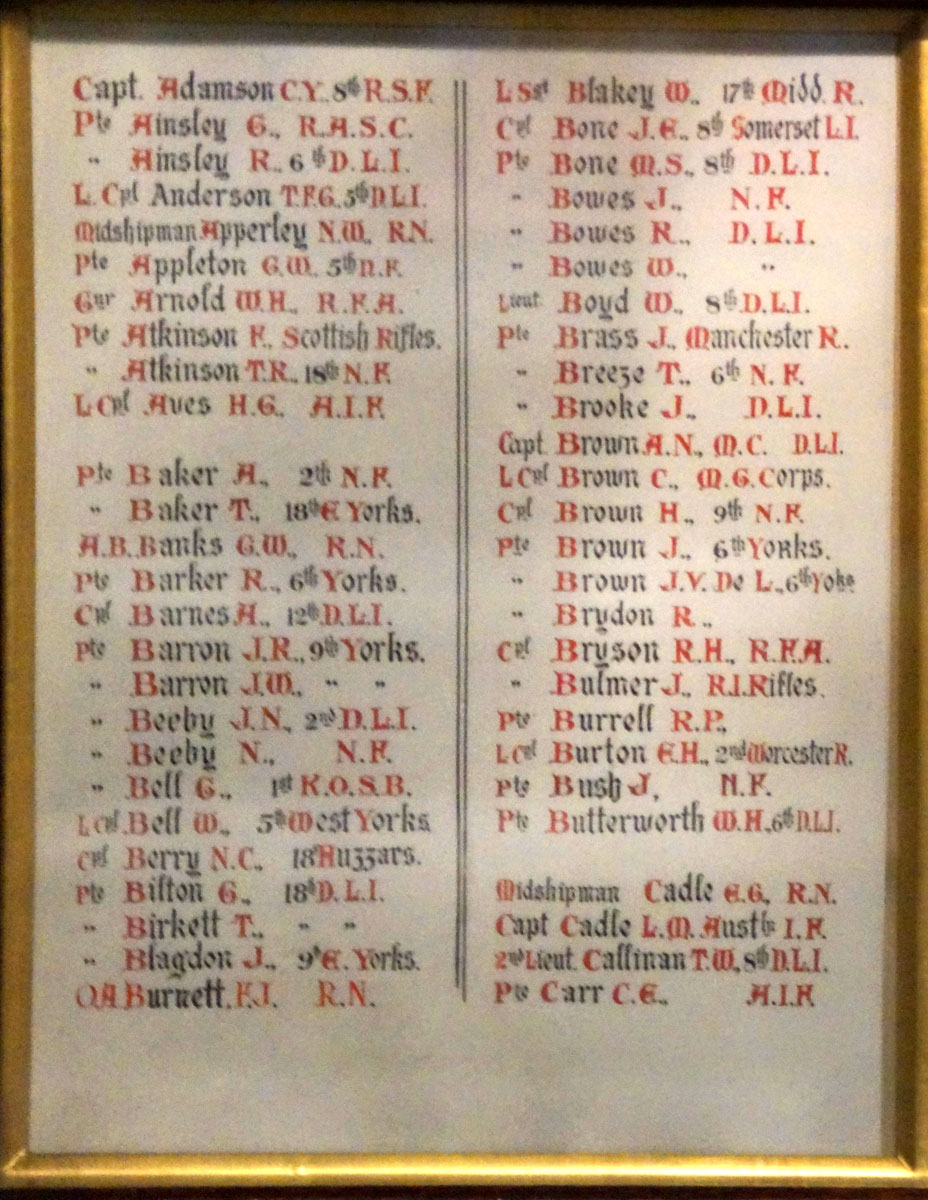 Capt. Adamson C.Y. 8th R.S.F.
Pte Ainsley G., R.A.S.C.
" Ainsley R., 6th D.L.I.
L. Cpl Anderson T.F.G. 5th D.L.I.
Midshipman Apperley N.W., R.N.
Pte Appleton G.W. 5th N.F.
Gnr Arnold W.H., R.F.A.
Pte Atkinson F., Scottish Rifles.
" Atkinson T.R., 18th N.F.
L Cpl Aves H.G., A.I.F.
Pte Baker A., 2th N.F.
" Baker T., 18th E Yorks.
A.B. Banks G.W., R.N.
Pte Barker R., 6th Yorks.
Cpl Barnes A., 12th D.L.I.
Pte Barron J.R., 9th Yorks.
" Barron J.W., " "
" Beeby J.N., 2nd D.L.I.
" Beeby N., N.F.
" Bell G., 1st K.O.S.B.
L Cpl. Bell W., 5th West Yorks
Cpl Berry N.C., 18th Huzzars.
Pte Bilton G., 18th D.L.I.
" Birkett T., " "
" Blagdon J., 9th E. Yorks.
O.A Burnett, F.J. R.N.
L Sgt Blakey W., 17th Midd. R.
Cpl Bone J.E., 8th Somerset L.I.
Pte Bone M.S., 8th D.L.I.
" Bowes J., N.F.
" Bowes R., D.L.I.
" Bowes W., "
Lieut. Boyd W., 8th D.L.I.
Pte Brass J., Manchester R.
" Breeze T., 6th N.F.
" Brooke J., D.L.I.
Capt. Brown A.N., M.C. D.L.I.
L Cpl Brown C., M.G. Corps.
Cpl Brown H., 9th N.F.
Pte Brown J., 6th Yorks.
" Brown J.V. De L., 6th Yoks
" Brydon R.,
Cpl Bryson R.H., R.F.A.
" Bulmer J., R.I. Rifles.
Pte Burrell R.P.,
L Cpl Burton E.H., 2nd Worcester R.
Pte Bush J, N.F.
Pte Butterworth W.H., 6th D.L.I.
Midshipman Cadle E.G., R.N.
Capt Cadle L.M. Austln I.F.
2nd Lieut. Callinan T.W., 8th D.L.I.
Pte Carr C.E., A.I.F.